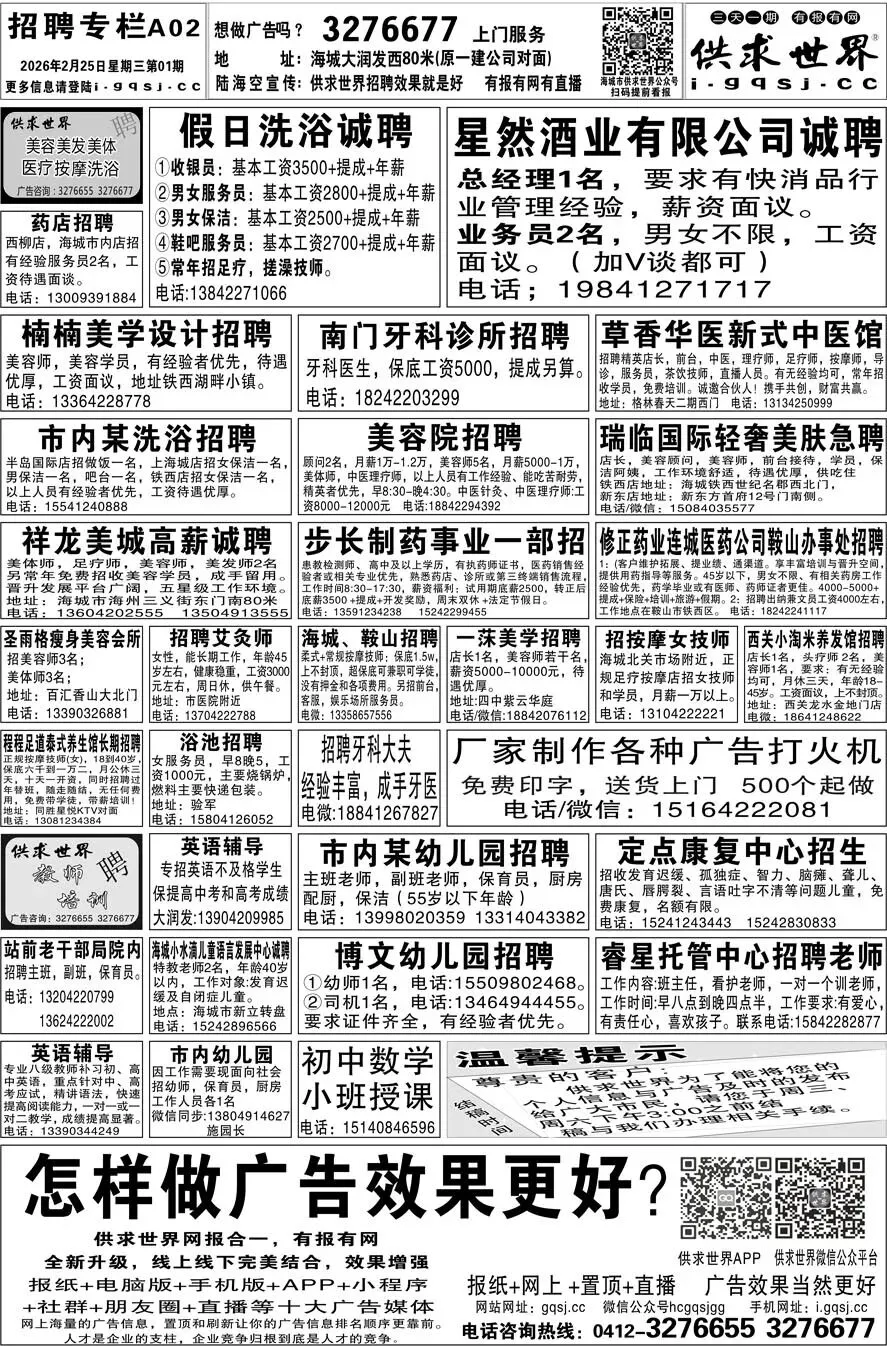 招聘专栏A02
2026年2月25日星期三第01期
更多信息请登陆i-gqsj.cc
想做广告吗? 3276677 上门服务
地 址:海城大润发西80米(原一建公司对面)
陆海空宣传:供求世界招聘效果就是好 有报有网有直播
海城市供求世界公众号
扫码提前看报
三天一期 有报有网
供求世界®
i-gqsj.cc
供求世界
聘
美容美发美体
医疗按摩洗浴
广告咨询:3276655 3276677
药店招聘
西柳店,海城市内店招
有经验服务员2名,工
资待遇面谈。
电话:13009391884
假日洗浴诚聘
①收银员:基本工资3500+提成+年薪
②男女服务员:基本工资2800+提成+年薪
③男女保洁:基本工资2500+提成+年薪
④鞋吧服务员:基本工资2700+提成+年薪
⑤常年招足疗,搓澡技师。
电话:13842271066
星然酒业有限公司诚聘
总经理1名,要求有快消品行
业管理经验,薪资面议。
业务员2名,男女不限,工资
面议。(加V谈都可)
电话;19841271717
楠楠美学设计招聘
美容师,美容学员,有经验者优先,待遇
优厚,工资面议,地址铁西湖畔小镇。
电话:13364228778
南门牙科诊所招聘
牙科医生,保底工资5000,提成另算。
电话:18242203299
草香华医新式中医馆
招聘精英店长,前台,中医,理疗师,足疗师,按摩师,导
诊,服务员,茶饮技师,直播人员。有无经验均可,常年招
收学员,免费培训。诚邀合伙人!携手共创,财富共赢。
地址:格林春天二期西门 电话:13134250999
市内某洗浴招聘
半岛国际店招做饭一名,上海城店招女保洁一名,
男保洁一名,吧台一名,铁西店招女保洁一名,
以上人员有经验者优先,工资待遇优厚。
电话:15541240888
美容院招聘
顾问2名,月薪1万-1.2万,美容师5名,月薪5000-1万,
美体师,中医理疗师,以上人员有工作经验、能吃苦耐劳,
精英者优先,早8:30-晚4:30。中医针灸、中医理疗师:工
资8000-12000元 电话:18842294392
瑞临国际轻奢美肤急聘
店长,美容顾问,美容师,前台接待,学员,保
洁阿姨,工作环境舒适,待遇优厚,供吃住
铁西店地址:海城铁西世纪名郡西北门,
新东店地址:新东方首府12号门南侧。
电话/微信:15084035577
祥龙美城高薪诚聘
美体师,足疗师,美容师,美发师2名
另常年免费招收美容学员,成手留用。
晋升发展平台广阔,五星级工作环境。
地址:海城市海州三义街东门南80米
电话:13604202555 13504913555
步长制药事业一部招
患教检测师、高中及以上学历,有执药师证书,医药销售经
验者或相关专业优先,熟悉药店、诊所或第三终端销售流程,
工作时间8:30-17:30,薪资福利:试用期底薪2500,转正后
底薪3500+提成+开发奖励,周末双休+法定节假日。
电话:13591234238 15242299455
修正药业连城医药公司鞍山办事处招聘
1:(客户维护拓展、提业绩、通渠道。享丰富培训与晋升空间,
提供用药指导等服务。45岁以下,男女不限、有相关药房工作
经验优先,药学毕业或有医师、药师证者更佳。4000-5000+
提成+保险+培训+旅游+假期。2:招聘出纳兼文员工资4000左右,
工作地点在鞍山市铁西区。 电话:18242241117
圣雨格瘦身美容会所
招美容师3名;
美体师3名;
地址:百汇香山大北门
电话:13390326881
招聘艾灸师
女性,能长期工作,年龄45
岁左右,健康稳重,工资3000
元左右,周日休,供午餐。
地址:市医院附近
电话:13704222788
海城、鞍山招聘
柔式+常规按摩技师:保底1.5w,
上不封顶,超保底可兼职可学徒,
没有押金和各项费用。另招前台,
客服,娱乐场所服务员。
电微:13358657556
一荡美学招聘
店长1名,美容师若干名,
薪资5000-10000元,待
遇优厚。
地址:四中紫云华庭
电话/微信:18842076112
招按摩女技师
海城北关市场附近,正
规足疗按摩店招女技师
和学员,月薪一万以上。
电话:13104222221
西关小淘米养发馆招聘
店长1名,头疗师2名,美
容师1名,要求:有无经验
均可,月休三天,年龄18-
45岁。工资面议,上不封顶。
地址:西关龙水金地门店
电微:18641248622
程程足道泰式养生馆长期招聘
正规按摩技师(女),18到40岁,
保底六千到一万二,月公休三
天,十天一开资,同时招聘过
年替班,随走随结,无任何费
用,免费带学徒,带薪培训!
地址:同胜星悦KTV对面
电话:13081234384
浴池招聘
女服务员,早8晚5,工
资1000元,主要烧锅炉,
燃料主要快递包装。
地址:验军
电话:15804126052
招聘牙科大夫
经验丰富,成手牙医
电微:18841267827
厂家制作各种广告打火机
免费印字,送货上门 500个起做
电话/微信:15164222081
供求世界
聘
教师
培训
广告咨询:3276655 3276677
英语辅导
专招英语不及格学生
保提高中考和高考成绩
大润发:13904209985
市内某幼儿园招聘
主班老师,副班老师,保育员,厨房
配厨,保洁(55岁以下年龄)
电话:13998020359 13314043382
定点康复中心招生
招收发育迟缓、孤独症、智力、脑瘫、聋儿、
唐氏、唇腭裂、言语吐字不清等问题儿童,免
费康复,名额有限。
电话:15241243443 15242830833
站前老干部局院内
招聘主班,副班,保育员。
电话:13204220799
13624222002
海城小水滴儿童语言发展中心诚聘
特教老师2名,年龄40岁
以内,工作对象:发育迟
缓及自闭症儿童。
地点:海城市新立转盘
电话:15242896566
博文幼儿园招聘
①幼师1名,电话:15509802468。
②司机1名,电话:13464944455。
要求证件齐全,有经验者优先。
睿星托管中心招聘老师
工作内容:班主任,看护老师,一对一个训老师,
工作时间:早八点到晚四点半,工作要求:有爱心,
有责任心,喜欢孩子。联系电话:15842282877
英语辅导
专业八级教师补习初、高
中英语,重点针对中、高
考应试,精讲语法,快速
提高阅读能力,一对一或一
对二教学,成绩提高显著。
电话:13390344249
市内幼儿园
因工作需要现面向社会
招幼师,保育员,厨房
工作人员各1名
微信同步:13804914627
施园长
初中数学
小班授课
电话:15140846596
温馨提示
结稿时间
尊贵的客户:
供求世界为了能将您的
个人信息与广告及时的发布
给广大市民,请您于周三、
周六下午3:00之前结
稿与我们办理相关手续。
怎样做广告效果更好?
供求世界网报合一,有报有网
全新升级,线上线下完美结合,效果增强
报纸+电脑版+手机版+APP+小程序
+社群+朋友圈+直播等十大广告媒体
网上海量的广告信息,置顶和刷新让你的广告信息排名顺序更靠前。
人才是企业的支柱,企业竞争归根到底是人才的竞争。
供求世界APP 供求世界微信公众平台
报纸+网上+置顶+直播 广告效果当然更好
网站网址:gqsj.cc 微信公众号hcgqsjgg 手机网址:i.gqsj.cc
电话咨询热线:0412-3276655 3276677